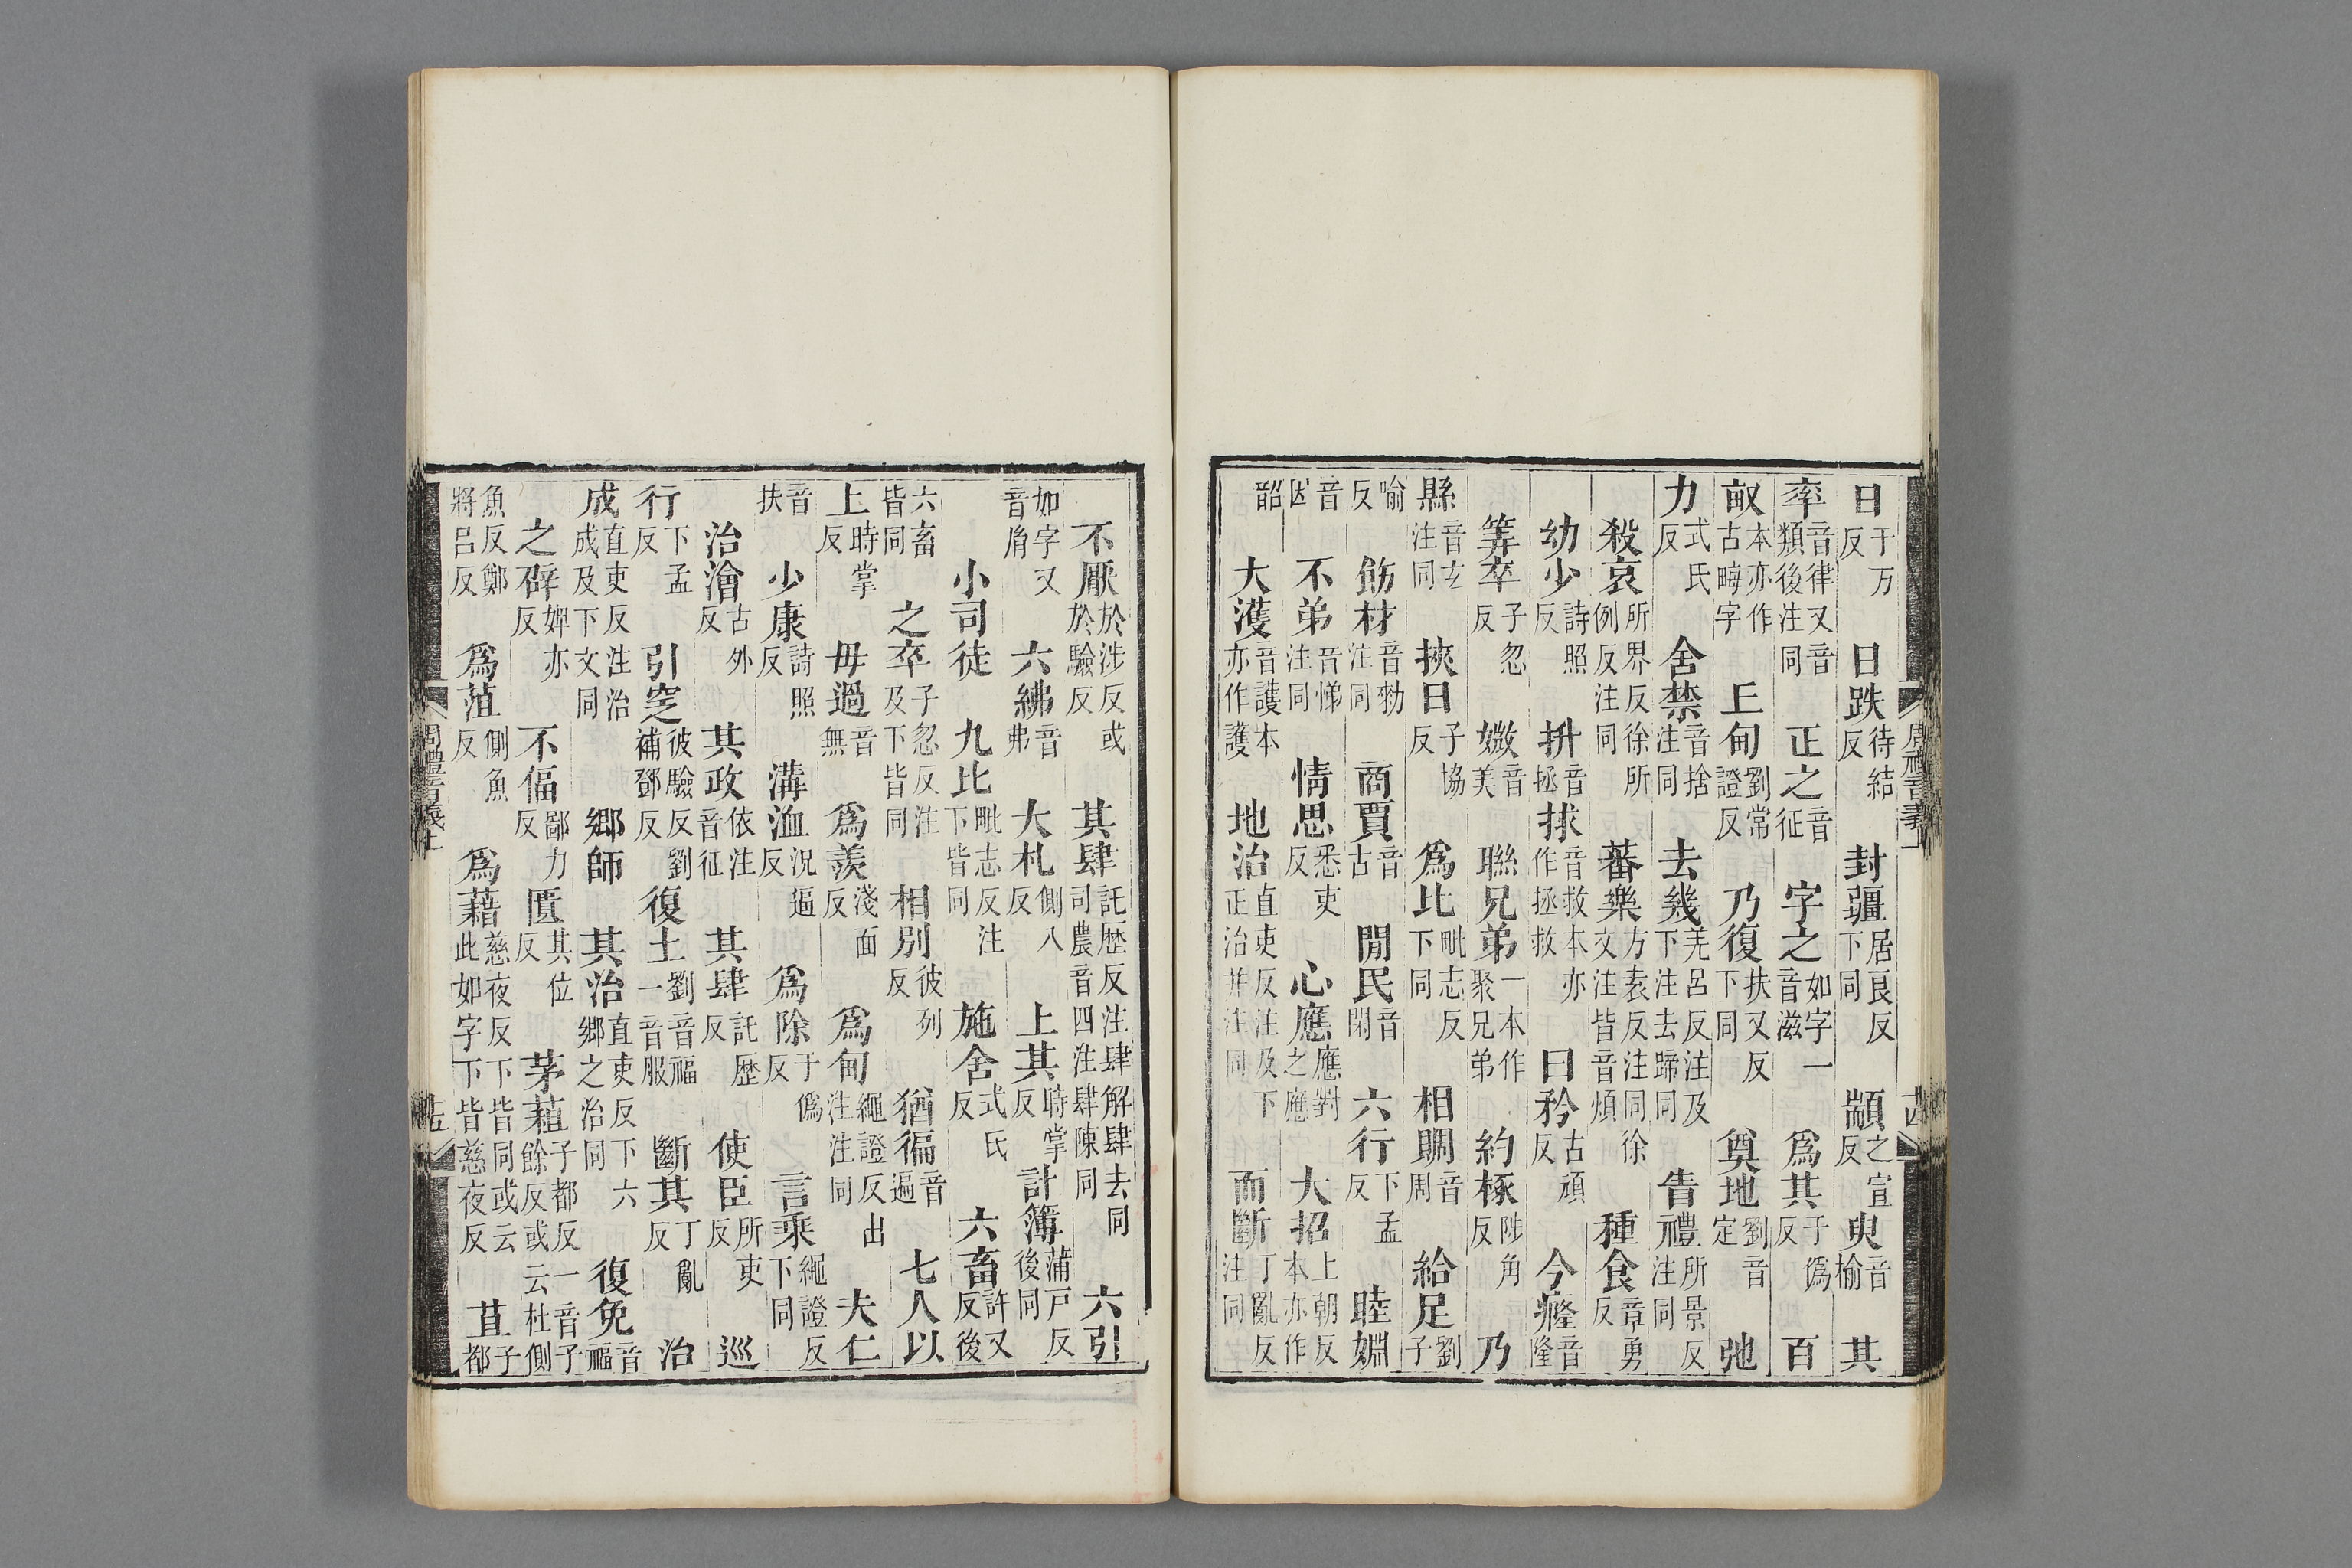 日于万反 日跌待結反 封疆居良反下同 顓之宣反 臾音榆 其
率音律又音類後注同 正之音征 字之如字一音滋 爲其于僞反 百
畝本亦作古畮字 上甸劉常證反 乃復扶又反下同 奠地劉音定 弛
力式氏反 舍禁音捨注同 去幾羌呂反注及下注去蹄同 眚禮所景反注同
殺哀所界反徐所例反注同 蕃樂方袁反注同徐文注皆音煩 種食章勇反
幼少詩照反 抍音拯 捄音救本亦作拯救 曰矜古頑反 今癃音隆
筭卒子忽反 媺音美 聯兄弟一本作聚兄弟 約椓陟角反 乃
縣音玄注同 挾日子協反 爲比毗志反下同 相賙音周 給足劉子
喻反 飭材音勑注同 商賈音古 閒民音閑 六行下孟反 睦婣
音因 不弟音悌注同 情思悉吏反 心應應對之應 大招上朝反本亦作
韶 大濩音護本亦作護 地治直吏反注及下正治并注同 而斷丁亂反注同
周禮音義上 十四
不厭於涉反或於驗反 其肆託歷反注肆解肆去同司農音四注肆陳同 六引
如字又音胤 六紼音弗 大札側八反 上其時掌反 計簿蒲戸反後同
小司徒 九比毗志反注下皆同 施舍式氏反 六畜許又反後
六畜皆同 之卒子忽反注及下皆同 相別彼列反 猶徧音遍 七人以
上時掌反 毋過音無 爲羨淺面反 爲甸繩證反出注注同 夫仁
音扶 少康詩照反 溝洫況逼反 爲除于僞反 言乘繩證反下同
治澮古外反 其政依注音征 其肆託歷反 使臣所吏反 巡
行下孟反 引窆彼驗反劉補鄧反 復土劉音福一音服 斷其丁亂反 治
成直吏反注治成及下文同 鄉師 其治直吏反下六鄉之治同 復免音福
之辟婢亦反 不偪鄙力反 匱其位反 茅蒩子都反一音子餘反或云杜側
魚反鄭將呂反 爲菹側魚反 爲藉慈夜反下皆同或云此如字下皆慈夜反 苴子都
周禮音義上 十五